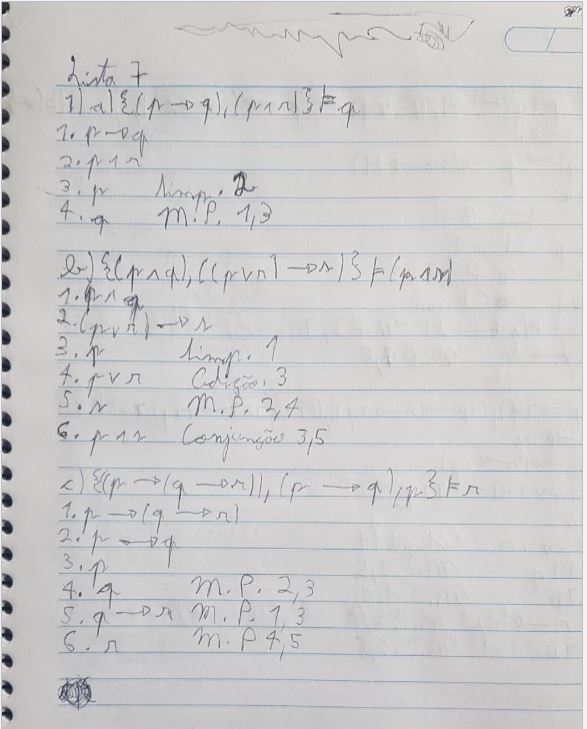 Lista 7
1) a) {(p → q), (p ∧ r)} ⊨ q
1. p → q
2. p ∧ r
3. p Simp. 2
4. q M.P. 1,3
b) {(p ∧ q), ((p ∨ r) → s)} ⊨ (p ∧ s)
1. p ∧ q
2. (p ∨ r) → s
3. p Simp. 1
4. p ∨ r Adição. 3
5. s M.P. 2,4
6. p ∧ s Conjunção 3,5
c) {(p → (q → r)), (p → q), p} ⊨ r
1. p → (q → r)
2. p → q
3. p
4. q M.P. 2,3
5. q → r M.P. 1,3
6. r M.P 4,5